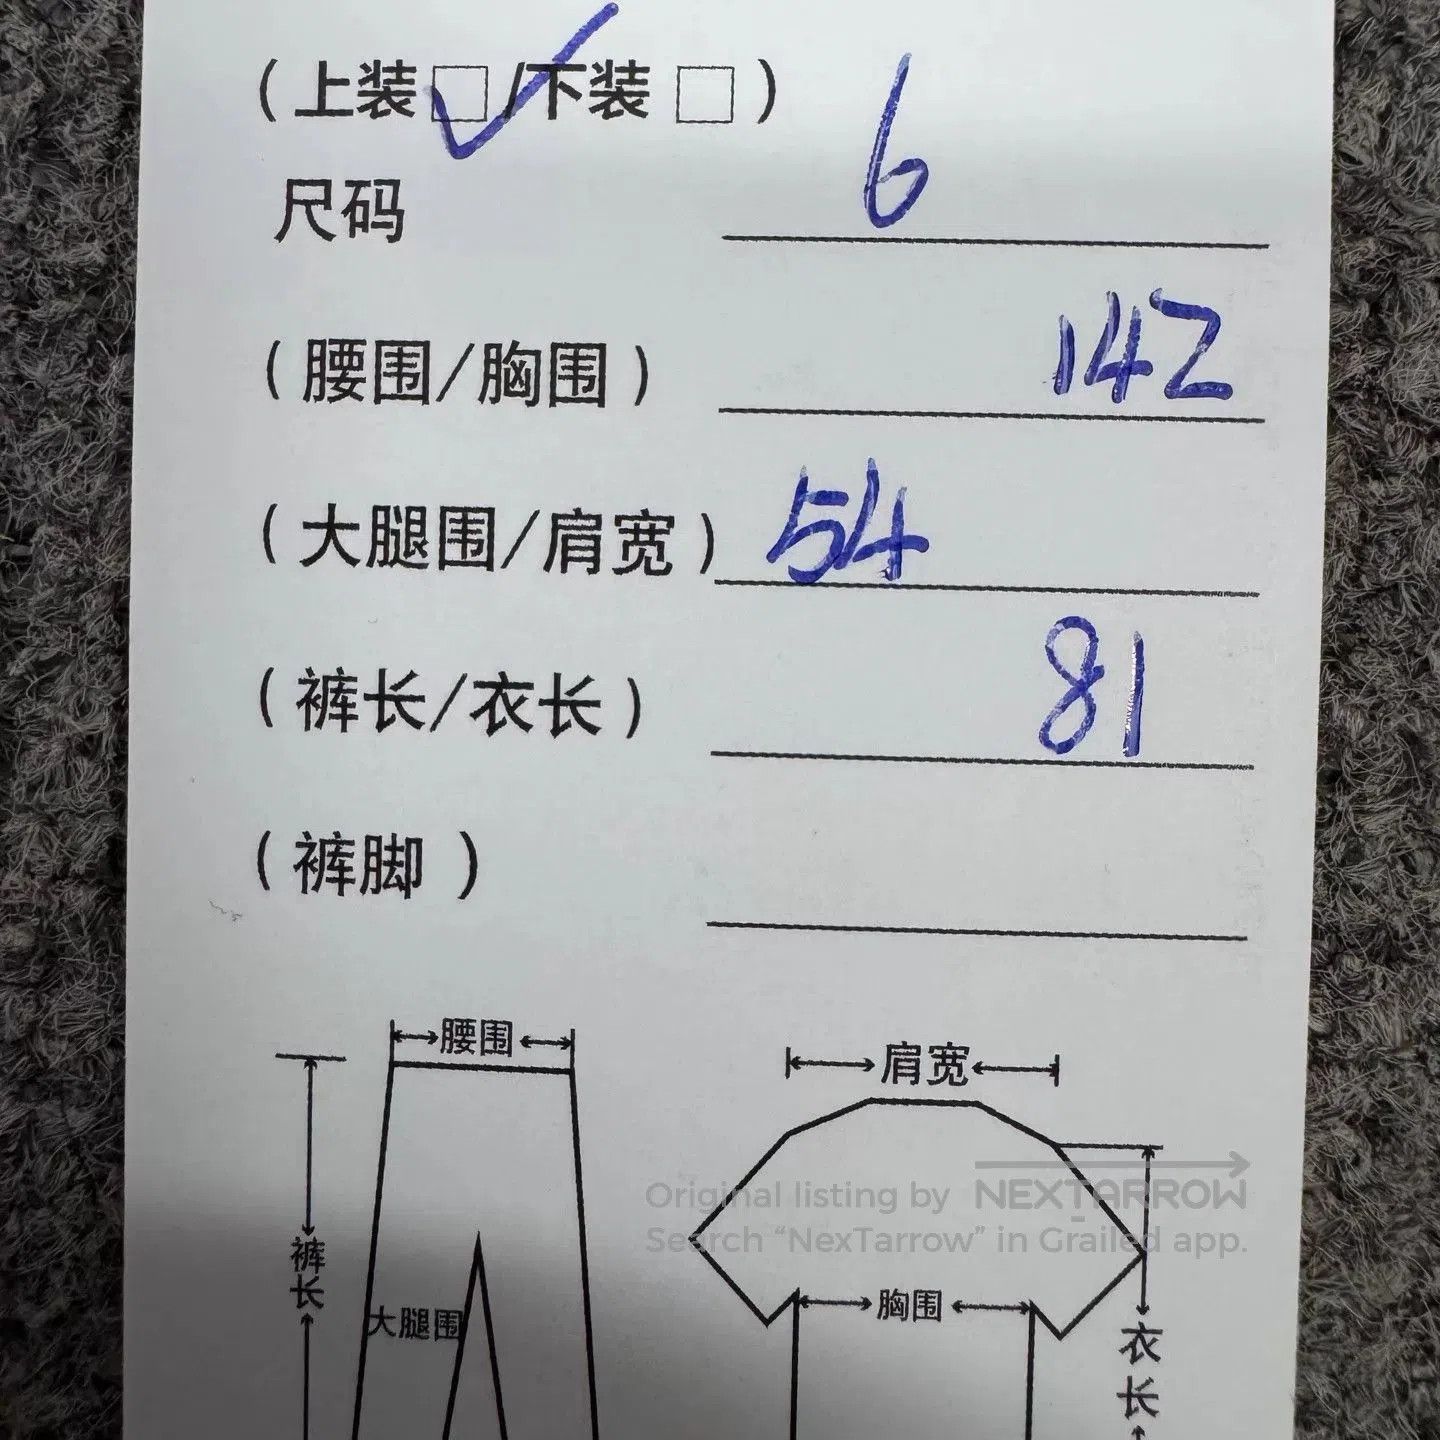 （上装□/下装□）
尺码 6
（腰围/胸围） 142
（大腿围/肩宽） 54
（裤长/衣长） 81
（裤脚）
腰围
肩宽
裤长
大腿围
胸围
衣长
Original listing by NEXTARROW
Search “NexTarrow” in Grailed app.